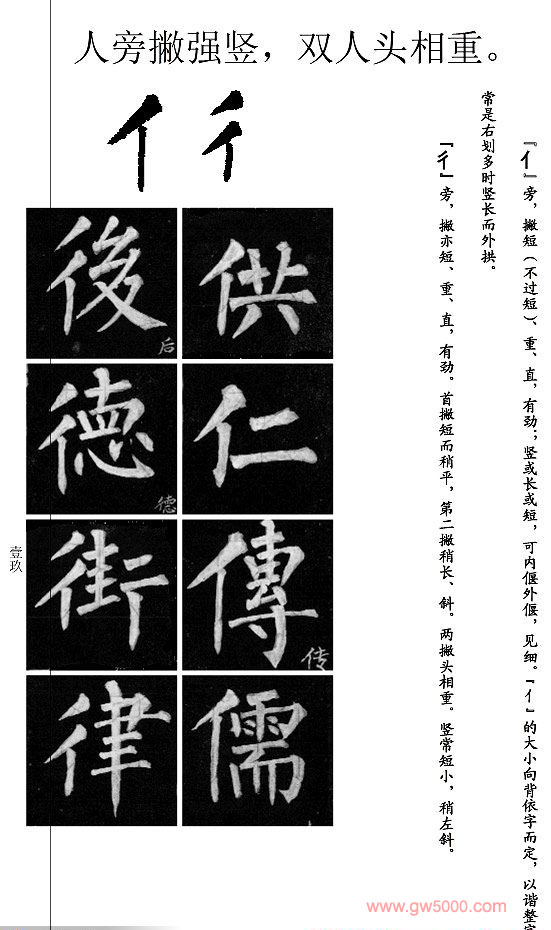 人旁撇强竖，双人头相重。
亻 彳
『亻』旁，撇短（不过短）、重、直，有劲；竖或长或短，可内偃外偃，见细。『亻』的大小向背依字而定，以谐整字
常是右划多时竖长而外拱。
『彳』旁，撇亦短、重、直，有劲。首撇短而稍平，第二撇稍长、斜。两撇头相重。竖常短小，稍左斜。
後 后 供
德 德 仁
街 傳 传
律 儒
壹玖
www.gw5000.com